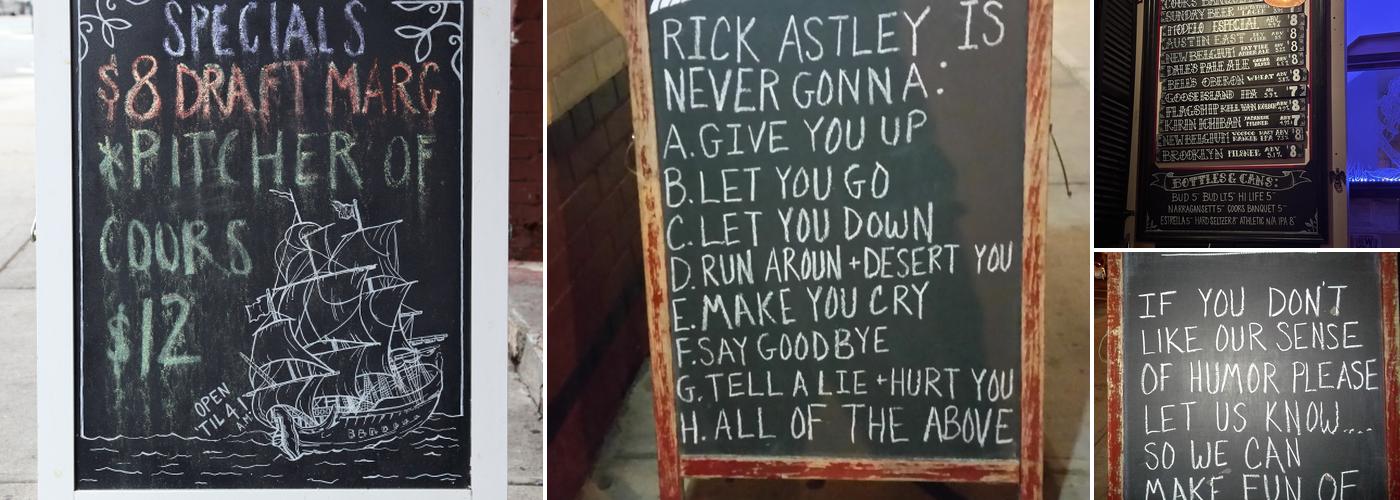 SPECIALS
$8 DRAFT MARG
*PITCHER OF
COORS
$12
OPEN
'TIL 4
AM
RICK ASTLEY IS
NEVER GONNA:
A. GIVE YOU UP
B. LET YOU GO
C. LET YOU DOWN
D. RUN AROUN + DESERT YOU
E. MAKE YOU CRY
F. SAY GOODBYE
G. TELL A LIE + HURT YOU
H. ALL OF THE ABOVE
COORS BANQUET
SUNDAY BEER LAGER 8
MODELO ESPECIAL ABV 8
AUSTIN EAST DRY CIDER ABV 8
NEW BELGIUM FAT TIRE AMBER ALE ABV 8
DALE'S PALE ALE ABV 8
BELL'S OBERON WHEAT ABV 8
GOOSE ISLAND IPA ABV 5.9% 7
FLAGSHIP 8
KIRIN ICHIBAN JAPANESE PILSNER ABV 7
NEW BELGIUM VOODOO RANGER IPA ABV 8
BROOKLYN PILSNER ABV 5.1% 8
BOTTLES & CANS:
BUD 5 BUD LT 5 HI LIFE 5
NARRAGANSETT 5 COORS BANQUET 5
ESTRELLA 5 HARD SELTZER 8 ATHLETIC N/A IPA 8
IF YOU DON'T
LIKE OUR SENSE
OF HUMOR PLEASE
LET US KNOW....
SO WE CAN
MAKE FUN OF